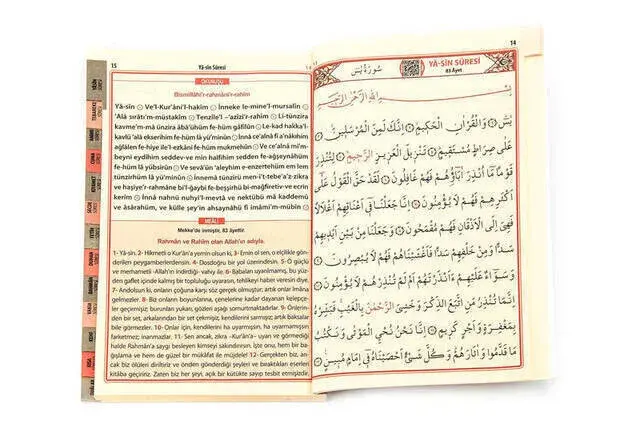 15
Yâ-sîn Sûresi
OKUNUŞU
Bismillâhi'r-rahmâni'r-rahîm
Yâ-sîn ۞ Ve'l-Kur'âni'l-hakîm ۞ İnneke le-mine'l-murselîn ۞
'Alâ sırâtı'm-müstakîm ۞ Tenzîle'l-'azîzi'r-rahîm ۞ Li-tünzira
kavme'm-mâ ünzira âbâühüm fe-hüm gâfilûn ۞ Le-kad hakka'l-
kavlü 'alâ ekserihim fe-hüm lâ yü'minûn ۞ İnnâ ce'alnâ fî a'nâkihim
ağlâlen fe-hiye ile'l-ezkâni fe-hüm mukmehûn ۞ Ve ce'alnâ mi'm-
beyni eydîhim sedden ve-min halfihim sedden fe-ağşeynâhüm
fe-hüm lâ yübsirûn ۞ Ve sevâün 'aleyhim e-enzertehüm em lem
tünzirhüm lâ yü'minûn ۞ İnnemâ tünziru meni't-tebe'a'z-zikra
ve haşiye'r-rahmâne bi'l-ğaybi fe-beşşirhü bi-mağfiretiv-ve ecrin
kerîm ۞ İnnâ nahnü nuhyi'l-mevtâ ve nektübü mâ kaddemû
ve âsârahüm, ve külle şey'in ahsaynâhü fî imâmi'm-mübîn ۞
MEÂLİ
Mekke'de inmiştir, 83 âyettir.
Rahmân ve Rahîm olan Allah'ın adıyla.
1- Yâ-sîn. 2- Hikmetli o Kur'an'a yemin olsun ki, 3- Emin ol sen, o elçilikle gönde-
rilen peygamberlerdensin. 4- Dosdoğru bir yol üzerindesin. 5- O güçlü
ve merhametli -Allah'ın indirdiği- vahiy ile. 6- Babaları uyarılmamış, bu yüz-
den gaflet içinde kalmış bir topluluğu uyarasın, tehlikeyi haber veresin diye.
7- Andolsun ki, onların çoğuna karşı söz gerçek olmuştur; artık onlar îmâna
gelmezler. 8- Biz onların boyunlarına, çenelerine kadar dayanan kelepçe-
ler geçirmişiz; burunları yukarı, gözleri aşağı somurtmaktadırlar. 9- Önlerin-
den bir set, arkalarından bir set çekmiş, kendilerini sarmışız; artık baksalar
bile görmezler. 10- Onları, için, kendilerini ha uyarmışsın, ha uyarmamışsın,
farketmez; inanmazlar. 11- Sen ancak, zikra -Kur'ân'a- uyan ve görmediği
halde Rahmân'a saygı besleyen kimseyi sakındırırsın. İşte onu, hem bir ba-
ğışlama ve hem de güzel bir mükâfat ile müjdele! 12- Gerçekten biz, an-
cak biz ölüleri diriltiriz ve önden gönderdikleri ve bıraktıkları eserleri
kitâba geçiririz. Zaten biz her şeyi, açık bir kütükte sayıp tesbit etmişizdir.
YÂSÎN
CUMA
FETİH
DUHAN
14
سُورَةُ يٰسٓ
YÂ-SÎN SÛRESİ
83 Âyet
بِسْمِ اللّٰهِ الرَّحْمٰنِ الرَّحِيمِ
يٰسٓ ۞ وَالْقُرْاٰنِ الْحَكِيمِ ۞ اِنَّكَ لَمِنَ الْمُرْسَلِينَ ۞
عَلٰى صِرَاطٍ مُسْتَقِيمٍ ۞ تَنْزِيلَ الْعَزِيزِ الرَّحِيمِ ۞ لِتُنْذِرَ
قَوْمًا مَٓا اُنْذِرَ اٰبَٓاؤُهُمْ فَهُمْ غَافِلُونَ ۞ لَقَدْ حَقَّ الْقَوْلُ عَلٰٓى
اَكْثَرِهِمْ فَهُمْ لَا يُؤْمِنُونَ ۞ اِنَّا جَعَلْنَا فِٓى اَعْنَاقِهِمْ اَغْلَالًا
فَهِىَ اِلَى الْاَذْقَانِ فَهُمْ مُقْمَحُونَ ۞ وَجَعَلْنَا مِنْ بَيْنِ اَيْدِيهِمْ
سَدًّا وَمِنْ خَلْفِهِمْ سَدًّا فَاَغْشَيْنَاهُمْ فَهُمْ لَا يُبْصِرُونَ ۞
وَسَوَٓاءٌ عَلَيْهِمْ ءَاَنْذَرْتَهُمْ اَمْ لَمْ تُنْذِرْهُمْ لَا يُؤْمِنُونَ ۞
اِنَّمَا تُنْذِرُ مَنِ اتَّبَعَ الذِّكْرَ وَخَشِىَ الرَّحْمٰنَ بِالْغَيْبِ فَبَشِّرْهُ
بِمَغْفِرَةٍ وَاَجْرٍ كَرِيمٍ ۞ اِنَّا نَحْنُ نُحْيِ الْمَوْتٰى وَنَكْتُبُ
مَا قَدَّمُوا وَاٰثَارَهُمْ وَكُلَّ شَىْءٍ اَحْصَيْنَاهُ فِٓى اِمَامٍ مُبِينٍ ۞